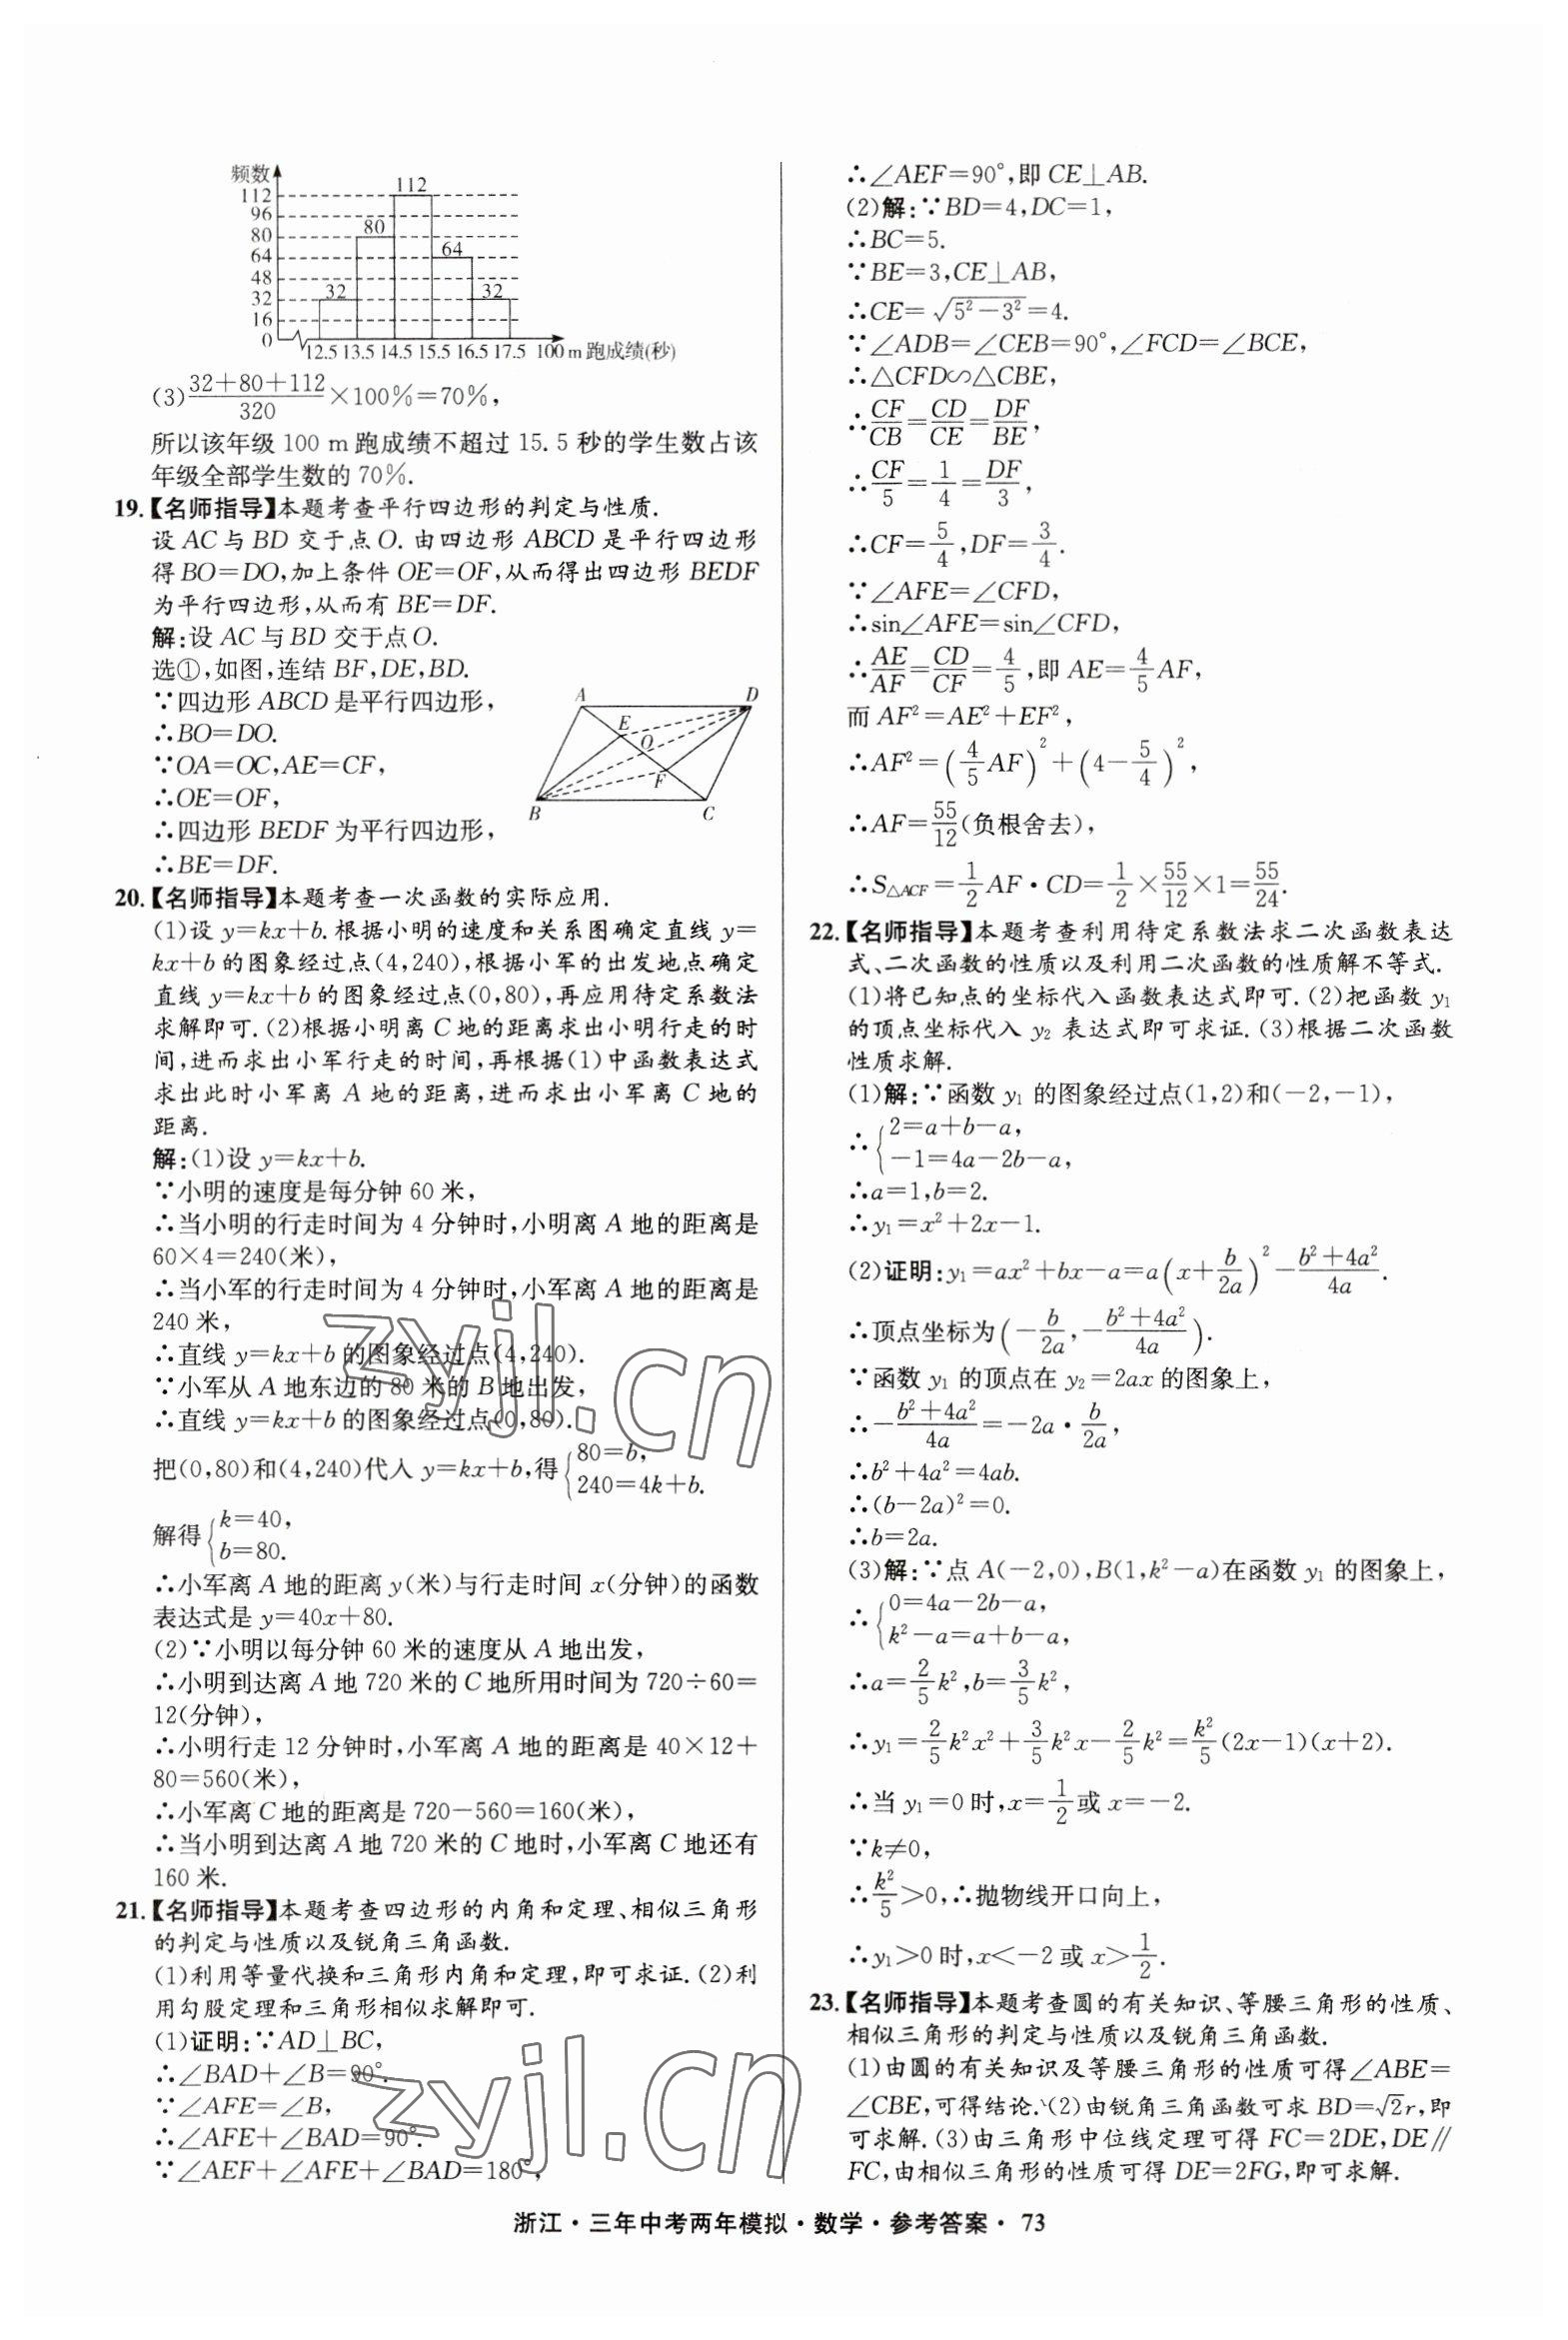 频数
112
96
80
64
48
32
16
0
32
80
112
64
32
12.5 13.5 14.5 15.5 16.5 17.5 100 m跑成绩(秒)
(3)\frac{32+80+112}{320}×100%=70%,
所以该年级 100 m 跑成绩不超过 15.5 秒的学生数占该
年级全部学生数的 70%.
19.【名师指导】本题考查平行四边形的判定与性质.
设 AC 与 BD 交于点 O. 由四边形 ABCD 是平行四边形
得 BO=DO,加上条件 OE=OF,从而得出四边形 BEDF
为平行四边形,从而有 BE=DF.
解:设 AC 与 BD 交于点 O.
选①,如图,连结 BF,DE,BD.
∵四边形 ABCD 是平行四边形,
∴BO=DO.
∵OA=OC,AE=CF,
∴OE=OF,
∴四边形 BEDF 为平行四边形,
∴BE=DF.
A
D
E
O
F
B
C
20.【名师指导】本题考查一次函数的实际应用.
(1)设 y=kx+b. 根据小明的速度和关系图确定直线 y=
kx+b 的图象经过点(4,240),根据小军的出发地点确定
直线 y=kx+b 的图象经过点(0,80),再应用待定系数法
求解即可.(2)根据小明离 C 地的距离求出小明行走的时
间,进而求出小军行走的时间,再根据(1)中函数表达式
求出此时小军离 A 地的距离,进而求出小军离 C 地的
距离.
解:(1)设 y=kx+b.
∵小明的速度是每分钟 60 米,
∴当小明的行走时间为 4 分钟时,小明离 A 地的距离是
60×4=240(米),
∴当小军的行走时间为 4 分钟时,小军离 A 地的距离是
240 米,
∴直线 y=kx+b 的图象经过点(4,240).
∵小军从 A 地东边的 80 米的 B 地出发,
∴直线 y=kx+b 的图象经过点(0,80).
把(0,80)和(4,240)代入 y=kx+b,得{80=b,
240=4k+b.
解得{k=40,
b=80.
∴小军离 A 地的距离 y(米)与行走时间 x(分钟)的函数
表达式是 y=40x+80.
(2)∵小明以每分钟 60 米的速度从 A 地出发,
∴小明到达离 A 地 720 米的 C 地所用时间为 720÷60=
12(分钟),
∴小明行走 12 分钟时,小军离 A 地的距离是 40×12+
80=560(米),
∴小军离 C 地的距离是 720-560=160(米),
∴当小明到达离 A 地 720 米的 C 地时,小军离 C 地还有
160 米.
21.【名师指导】本题考查四边形的内角和定理、相似三角形
的判定与性质以及锐角三角函数.
(1)利用等量代换和三角形内角和定理,即可求证.(2)利
用勾股定理和三角形相似求解即可.
(1)证明:∵AD⊥BC,
∴∠BAD+∠B=90°.
∵∠AFE=∠B,
∴∠AFE+∠BAD=90°.
∵∠AEF+∠AFE+∠BAD=180°,
∴∠AEF=90°,即 CE⊥AB.
(2)解:∵BD=4,DC=1,
∴BC=5.
∵BE=3,CE⊥AB,
∴CE=√(5²-3²)=4.
∵∠ADB=∠CEB=90°,∠FCD=∠BCE,
∴△CFD∽△CBE,
∴\frac{CF}{CB}=\frac{CD}{CE}=\frac{DF}{BE},
∴\frac{CF}{5}=\frac{1}{4}=\frac{DF}{3},
∴CF=\frac{5}{4},DF=\frac{3}{4}.
∵∠AFE=∠CFD,
∴sin∠AFE=sin∠CFD,
∴\frac{AE}{AF}=\frac{CD}{CF}=\frac{4}{5},即 AE=\frac{4}{5}AF,
而 AF²=AE²+EF²,
∴AF²=(\frac{4}{5}AF)²+(4-\frac{5}{4})²,
∴AF=\frac{55}{12}(负根舍去),
∴S△ACF=\frac{1}{2}AF·CD=\frac{1}{2}×\frac{55}{12}×1=\frac{55}{24}.
22.【名师指导】本题考查利用待定系数法求二次函数表达
式、二次函数的性质以及利用二次函数的性质解不等式.
(1)将已知点的坐标代入函数表达式即可.(2)把函数 y₁
的顶点坐标代入 y₂ 表达式即可求证.(3)根据二次函数
性质求解.
(1)解:∵函数 y₁ 的图象经过点(1,2)和(-2,-1),
∴{2=a+b-a,
-1=4a-2b-a,
∴a=1,b=2.
∴y₁=x²+2x-1.
(2)证明:y₁=ax²+bx-a=a(x+\frac{b}{2a})²-\frac{b²+4a²}{4a}.
∴顶点坐标为(-\frac{b}{2a},-\frac{b²+4a²}{4a}).
∵函数 y₁ 的顶点在 y₂=2ax 的图象上,
∴-\frac{b²+4a²}{4a}=-2a·\frac{b}{2a},
∴b²+4a²=4ab.
∴(b-2a)²=0.
∴b=2a.
(3)解:∵点 A(-2,0),B(1,k²-a)在函数 y₁ 的图象上,
∴{0=4a-2b-a,
k²-a=a+b-a,
∴a=\frac{2}{5}k²,b=\frac{3}{5}k²,
∴y₁=\frac{2}{5}k²x²+\frac{3}{5}k²x-\frac{2}{5}k²=\frac{k²}{5}(2x-1)(x+2).
∴当 y₁=0 时,x=\frac{1}{2}或 x=-2.
∵k≠0,
∴\frac{k²}{5}>0,∴抛物线开口向上,
∴y₁>0 时,x<-2 或 x>\frac{1}{2}.
23.【名师指导】本题考查圆的有关知识、等腰三角形的性质、
相似三角形的判定与性质以及锐角三角函数.
(1)由圆的有关知识及等腰三角形的性质可得∠ABE=
∠CBE,可得结论.(2)由锐角三角函数可求 BD=√2r,即
可求解.(3)由三角形中位线定理可得 FC=2DE,DE∥
FC,由相似三角形的性质可得 DE=2FG,即可求解.
zyjl.cn
zyjl.cn
浙江·三年中考两年模拟·数学·参考答案· 73